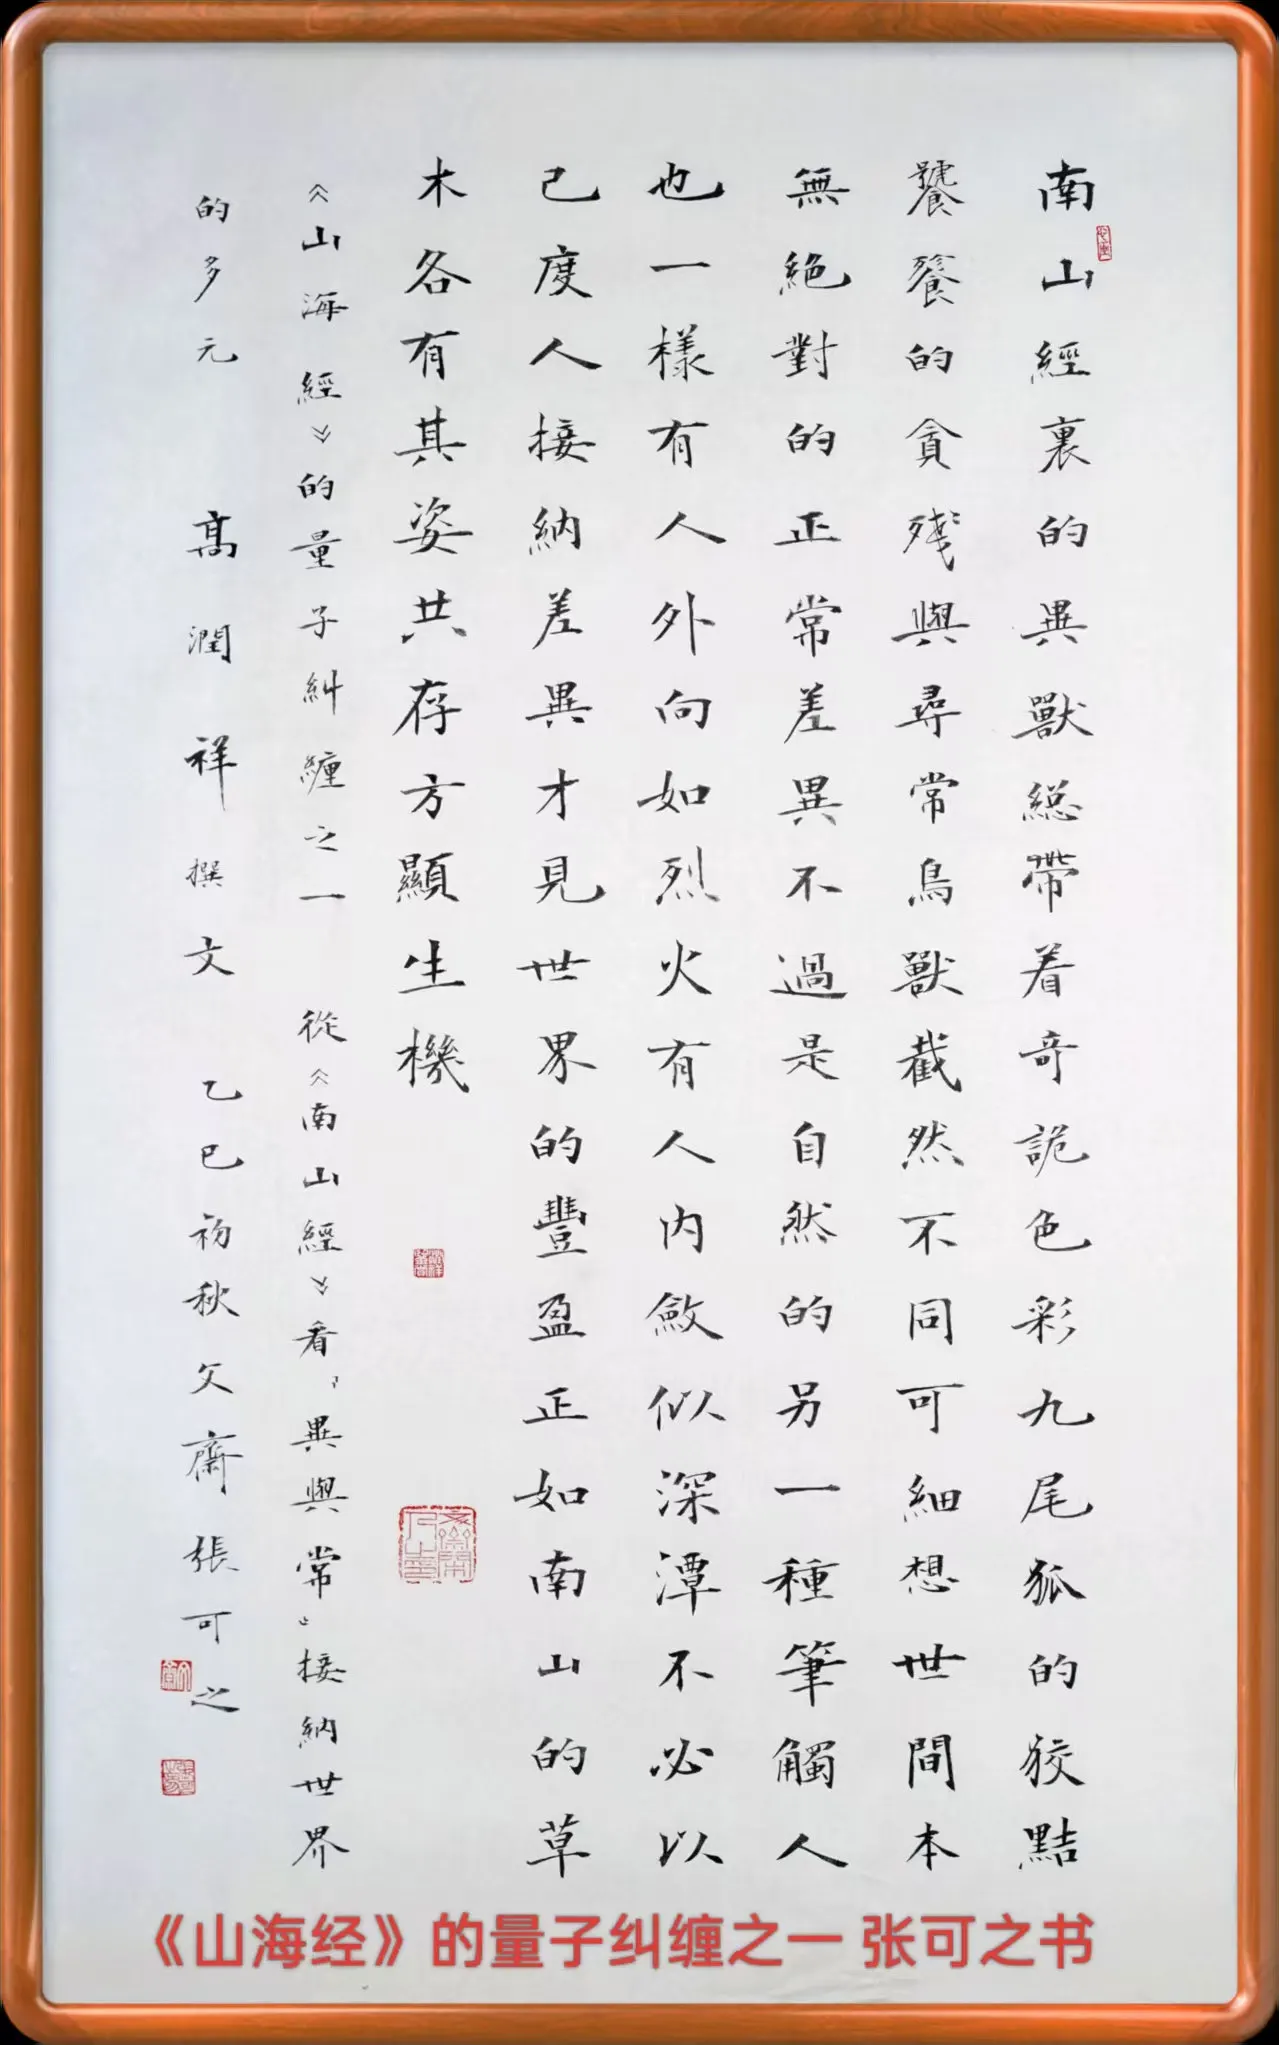 南山經裏的異獸總帶着奇詭色彩九尾狐的狡黠
饕餮的貪殘與尋常鳥獸截然不同可細想世間本
無絕對的正常差異不過是自然的另一種筆觸人
也一樣有人外向如烈火有人内斂似深潭不必以
己度人接納差異才見世界的豐盈正如南山的草
木各有其姿共存方顯生機
《山海經》的量子糾纏之一 從《南山經》看“異與常”接納世界
的多元 高潤祥 撰文 乙巳初秋文齋張可之
《山海经》的量子纠缠之一 张可之书